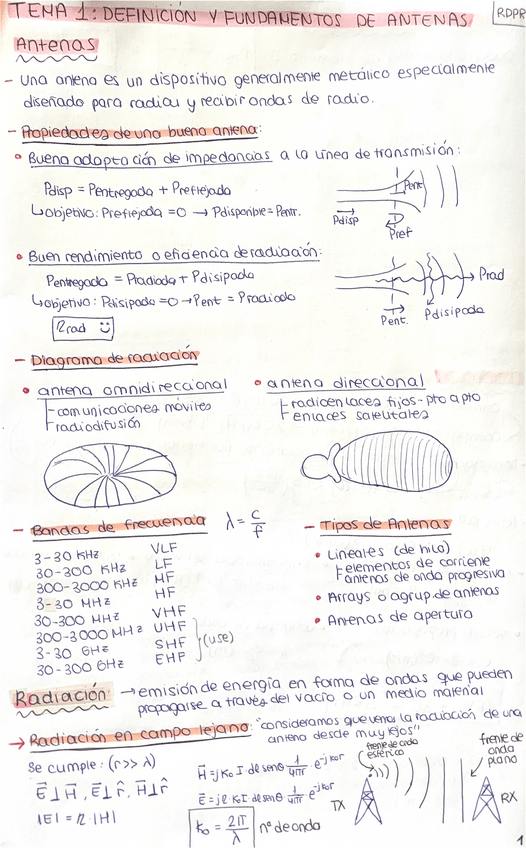 TEMA 1: DEFINICIÓN Y FUNDAMENTOS DE ANTENAS
RDPR
Antenas
- Una antena es un dispositivo generalmente metálico especialmente
diseñado para radiar y recibir ondas de radio.
- Propiedades de una buena antena:
• Buena adaptación de impedancias a la línea de transmisión:
Pdisp = Pentregada + Preflejada
↳objetivo: Preflejada = 0 → Pdisponible = Pentr.
Pent
Pdisp
Pref
• Buen rendimiento o eficiencia de radiación:
Pentregada = Pradiada + Pdisipada
↳objetivo: Pdisipada = 0 → Pent = Pradiada
ηrad
Prad
Pent. Pdisipada
- Diagrama de radiación
• antena omnidireccional
- comunicaciones móviles
- radiodifusión
• antena direccional
- radioenlaces fijos-pto a pto
- enlaces satelitales
- Bandas de frecuencia λ = c/f
3-30 KHz VLF
30-300 KHz LF
300-3000 KHz MF
3-30 MHz HF
30-300 MHz VHF
300-3000 MHz UHF
3-30 GHz SHF
30-300 GHz EHF
(use)
- Tipos de Antenas
• Lineales (de hilo)
- elementos de corriente
- antenas de onda progresiva
• Arrays o agrup. de antenas
• Antenas de apertura
Radiación: → emisión de energía en forma de ondas que pueden
propagarse a través del vacío o un medio material
→ Radiación en campo lejano: "consideramos que vemos la radiación de una
antena desde muy lejos"
Se cumple: (r >> λ)
E ⊥ H, E ⊥ r̂, H ⊥ r̂
|E| = η · |H|
H = j K₀ I dl senθ 1/4πr · e^-jk₀r
E = j η K₀ I dl senθ 1/4πr e^-jk₀r
K₀ = 2π/λ nº de onda
frente de onda
esférico
TX
frente de
onda
plano
RX
1